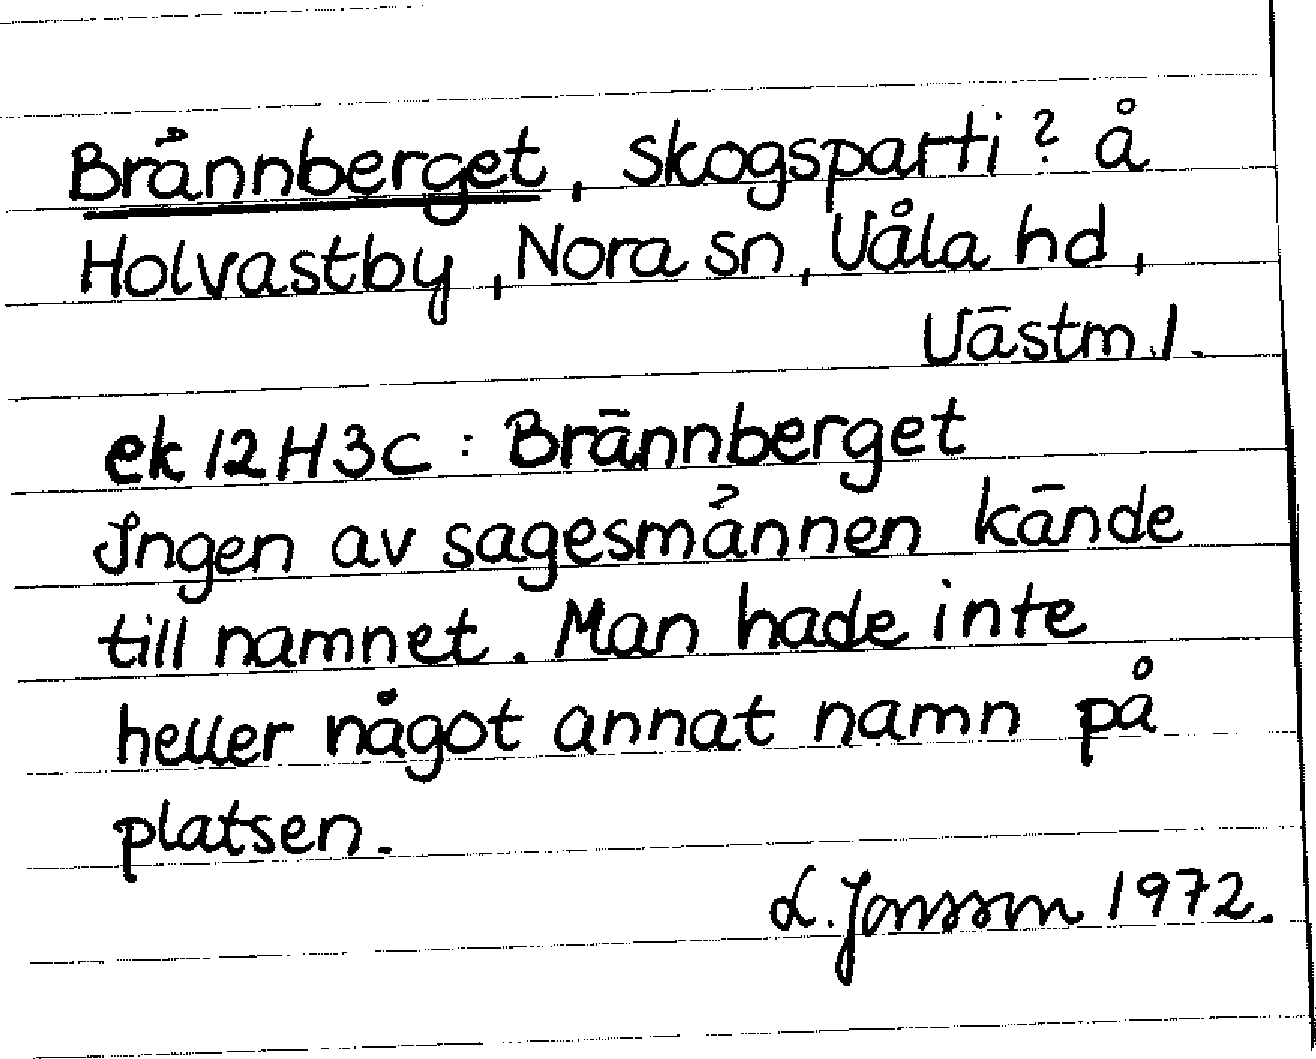 Brännberget, skogsparti? å
Holvastby, Nora sn, Våla hd,
Västm.l.
ek 12H3C : Brännberget
Ingen av sagesmännen kände
till namnet. Man hade inte
heller något annat namn på
platsen.
L. Jonsson 1972.